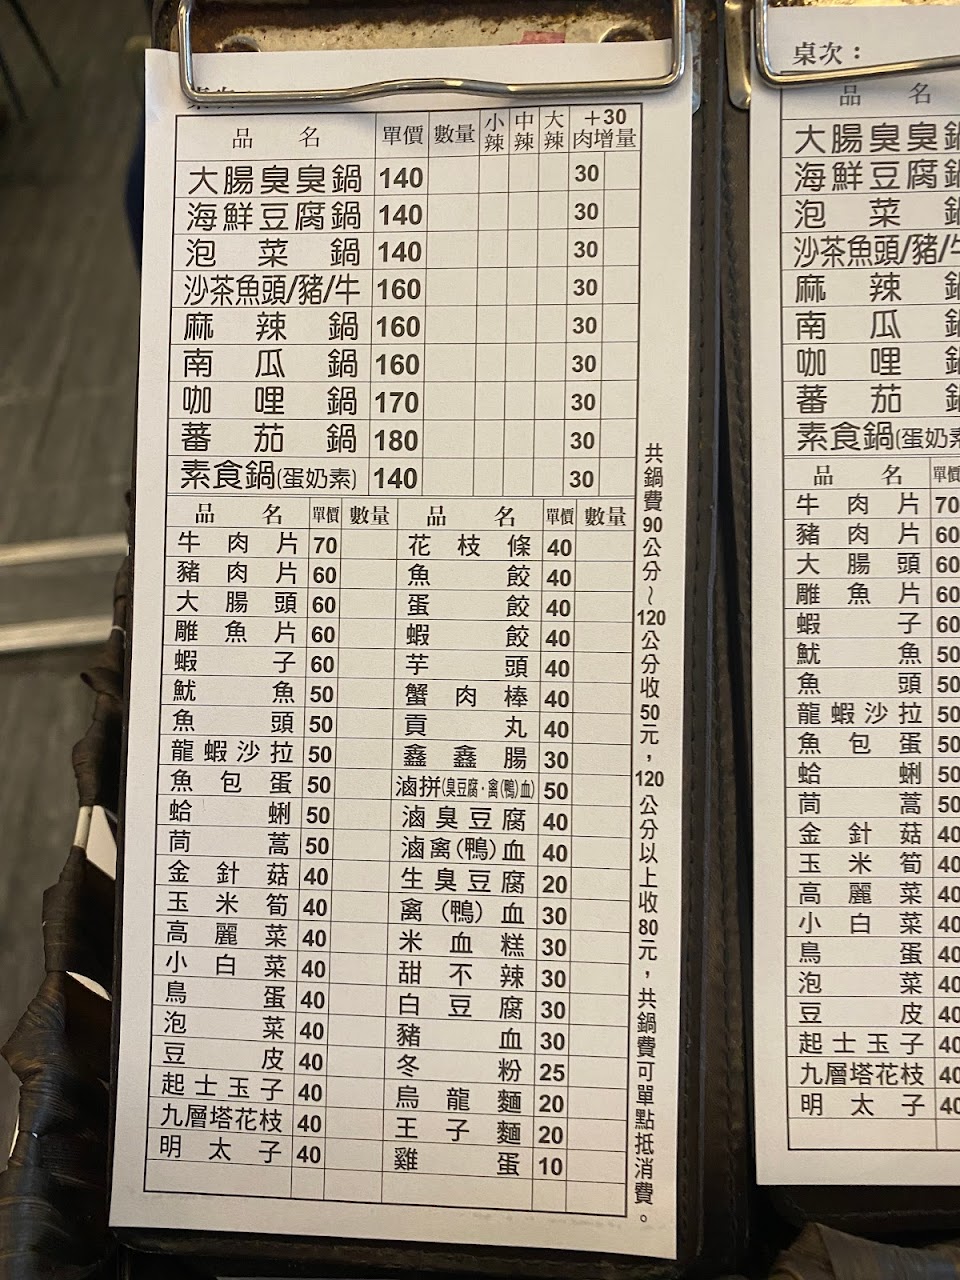 品名 單價 數量 小辣 中辣 大辣 +30肉增量
大腸臭臭鍋 140 30
海鮮豆腐鍋 140 30
泡菜鍋 140 30
沙茶魚頭/豬/牛 160 30
麻辣鍋 160 30
南瓜鍋 160 30
咖哩鍋 170 30
蕃茄鍋 180 30
素食鍋(蛋奶素) 140 30
品名 單價 數量 品名 單價 數量
牛肉片 70 花枝條 40
豬肉片 60 魚餃 40
大腸頭 60 蛋餃 40
雕魚片 60 蝦餃 40
蝦子 60 芋頭 40
魷魚 50 蟹肉棒 40
魚頭 50 貢丸 40
龍蝦沙拉 50 鑫鑫腸 30
魚包蛋 50 滷拼(臭豆腐・禽(鴨)血) 50
蛤蜊 50 滷臭豆腐 40
茼蒿 50 滷禽(鴨)血 40
金針菇 40 生臭豆腐 20
玉米筍 40 禽(鴨)血 30
高麗菜 40 米血糕 30
小白菜 40 甜不辣 30
鳥蛋 40 白豆腐 30
泡菜 40 豬血 30
豆皮 40 冬粉 25
起士玉子 40 烏龍麵 20
九層塔花枝 40 王子麵 20
明太子 40 雞蛋 10
共鍋費90公分~120公分收50元,120公分以上收80元,共鍋費可單點抵消費。
桌次：
品名
大腸臭臭
海鮮豆腐
泡菜
沙茶魚頭/豬/
麻辣
南瓜
咖哩
蕃茄
素食鍋(蛋奶
品名 單價
牛肉片 70
豬肉片 60
大腸頭 60
雕魚片 60
蝦子 60
魷魚 50
魚頭 50
龍蝦沙拉 50
魚包蛋 50
蛤蜊 50
茼蒿 50
金針菇 40
玉米筍 40
高麗菜 40
小白菜 40
鳥蛋 40
泡菜 40
豆皮 40
起士玉子 40
九層塔花枝 40
明太子 40